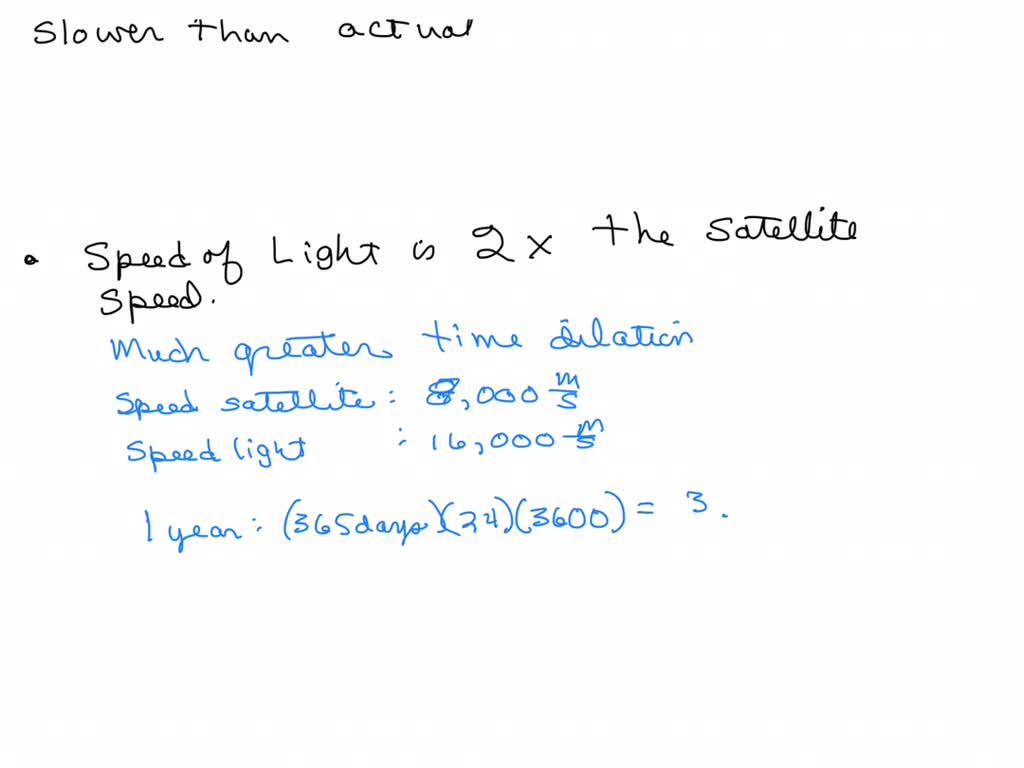 Slower than actual
• Speed of Light is 2x the satellite
speed.
Much greater time dilation
Speed satellite: 8,000 m/s
Speed light : 16,000 m/s
1 year: (365days)(24)(3600) = 3.